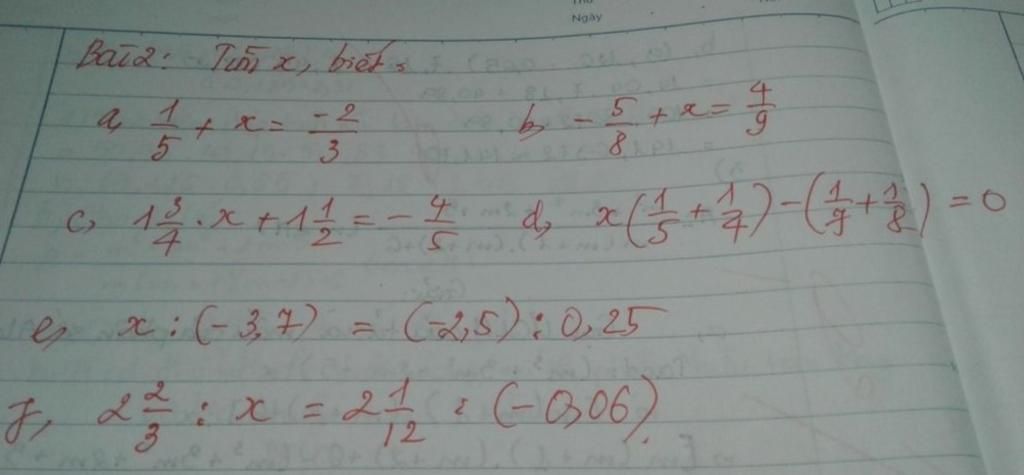 Thứ
Ngày
Bài 2: Tìm x, biết:
a, 1/5 + x = -2/3 b, - 5/8 + x = 4/9
c, 1 3/4 . x + 1 1/2 = - 4/5 d, x(1/5 + 1/4) - (1/7 + 1/8) = 0
e, x : (-3,7) = (-2,5) : 0,25
f, 2 2/3 : x = 2 1/12 : (-0,06).